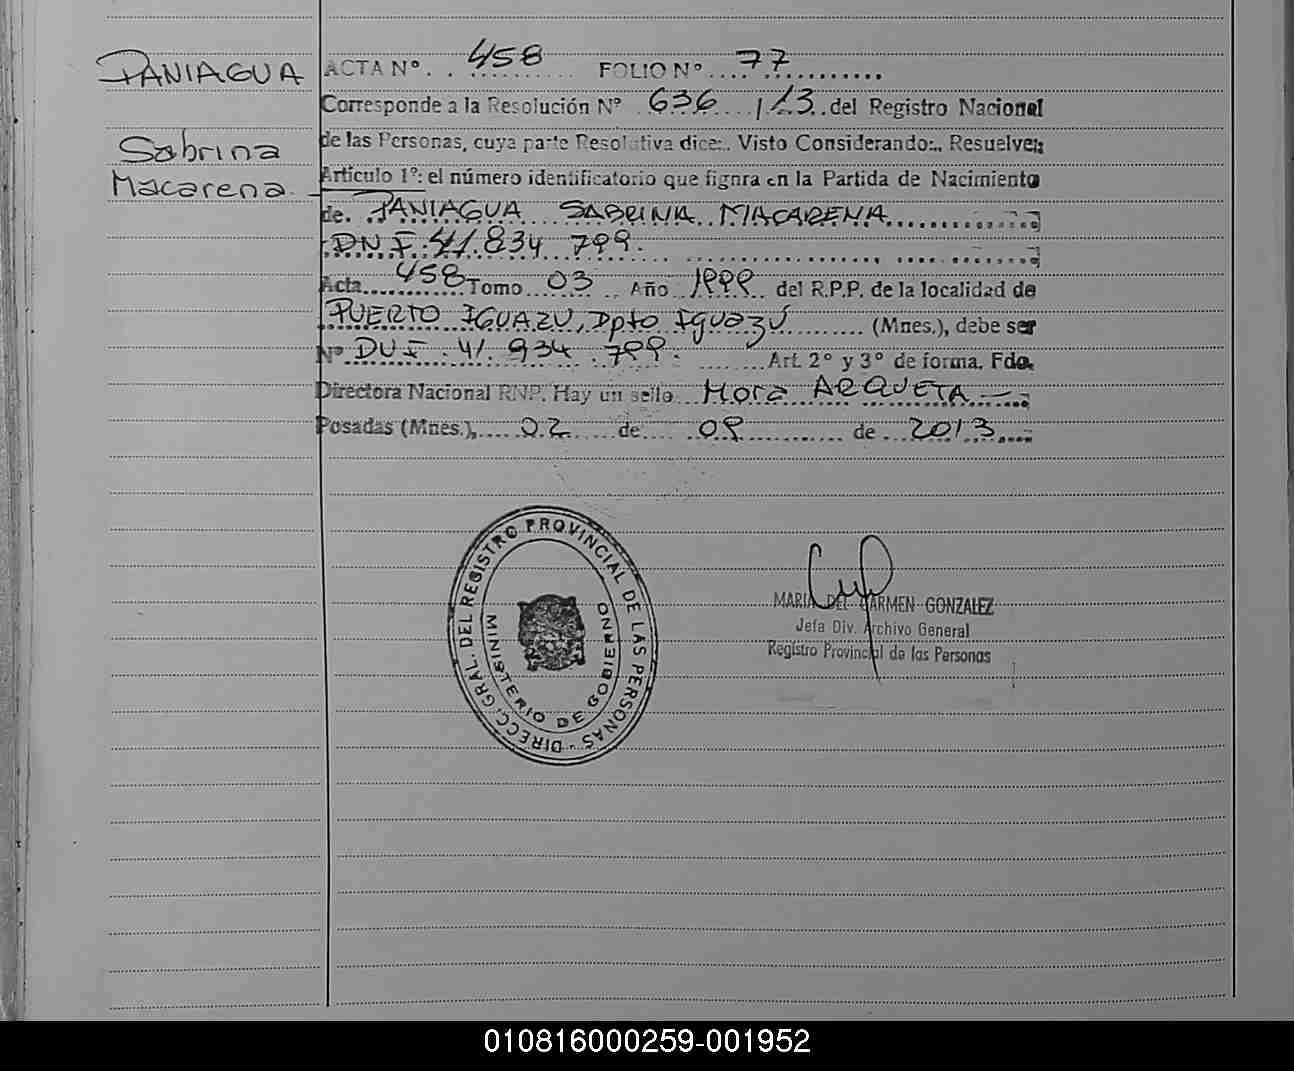 PANIAGUA
Sabrina
Macarena
ACTA Nº. . 458 . . . . FOLIO Nº . . . . 77 . . . . . . . . . . .
Corresponde a la Resolución Nº 636 . . . . / 13 . . del Registro Nacional
de las Personas, cuya parte Resolutiva dice:. Visto Considerando:., Resuelve:
Artículo 1º: el número identificatorio que fignra en la Partida de Nacimiento
de. PANIAGUA SABRINA MACARENA
DN I. 41. 834 799.
Acta 458 Tomo 03 Año 1999 del R.P.P. de la localidad de
PUERTO IGUAZU, Dpto Iguazú (Mnes.), debe ser
Nº DU I. 41. 934. 799. Art. 2° y 3° de forma. Fdo.
Directora Nacional RNP. Hay un sello Mora ARQUETA
Posadas (Mnes.), 02 de 09 de 2013
DIRECC. GRAL. DEL REGISTRO PROVINCIAL DE LAS PERSONAS -
MINISTERIO DE GOBIERNO
MARIA DEL CARMEN GONZALEZ
Jefa Div. Archivo General
Registro Provincial de las Personas
010816000259-001952